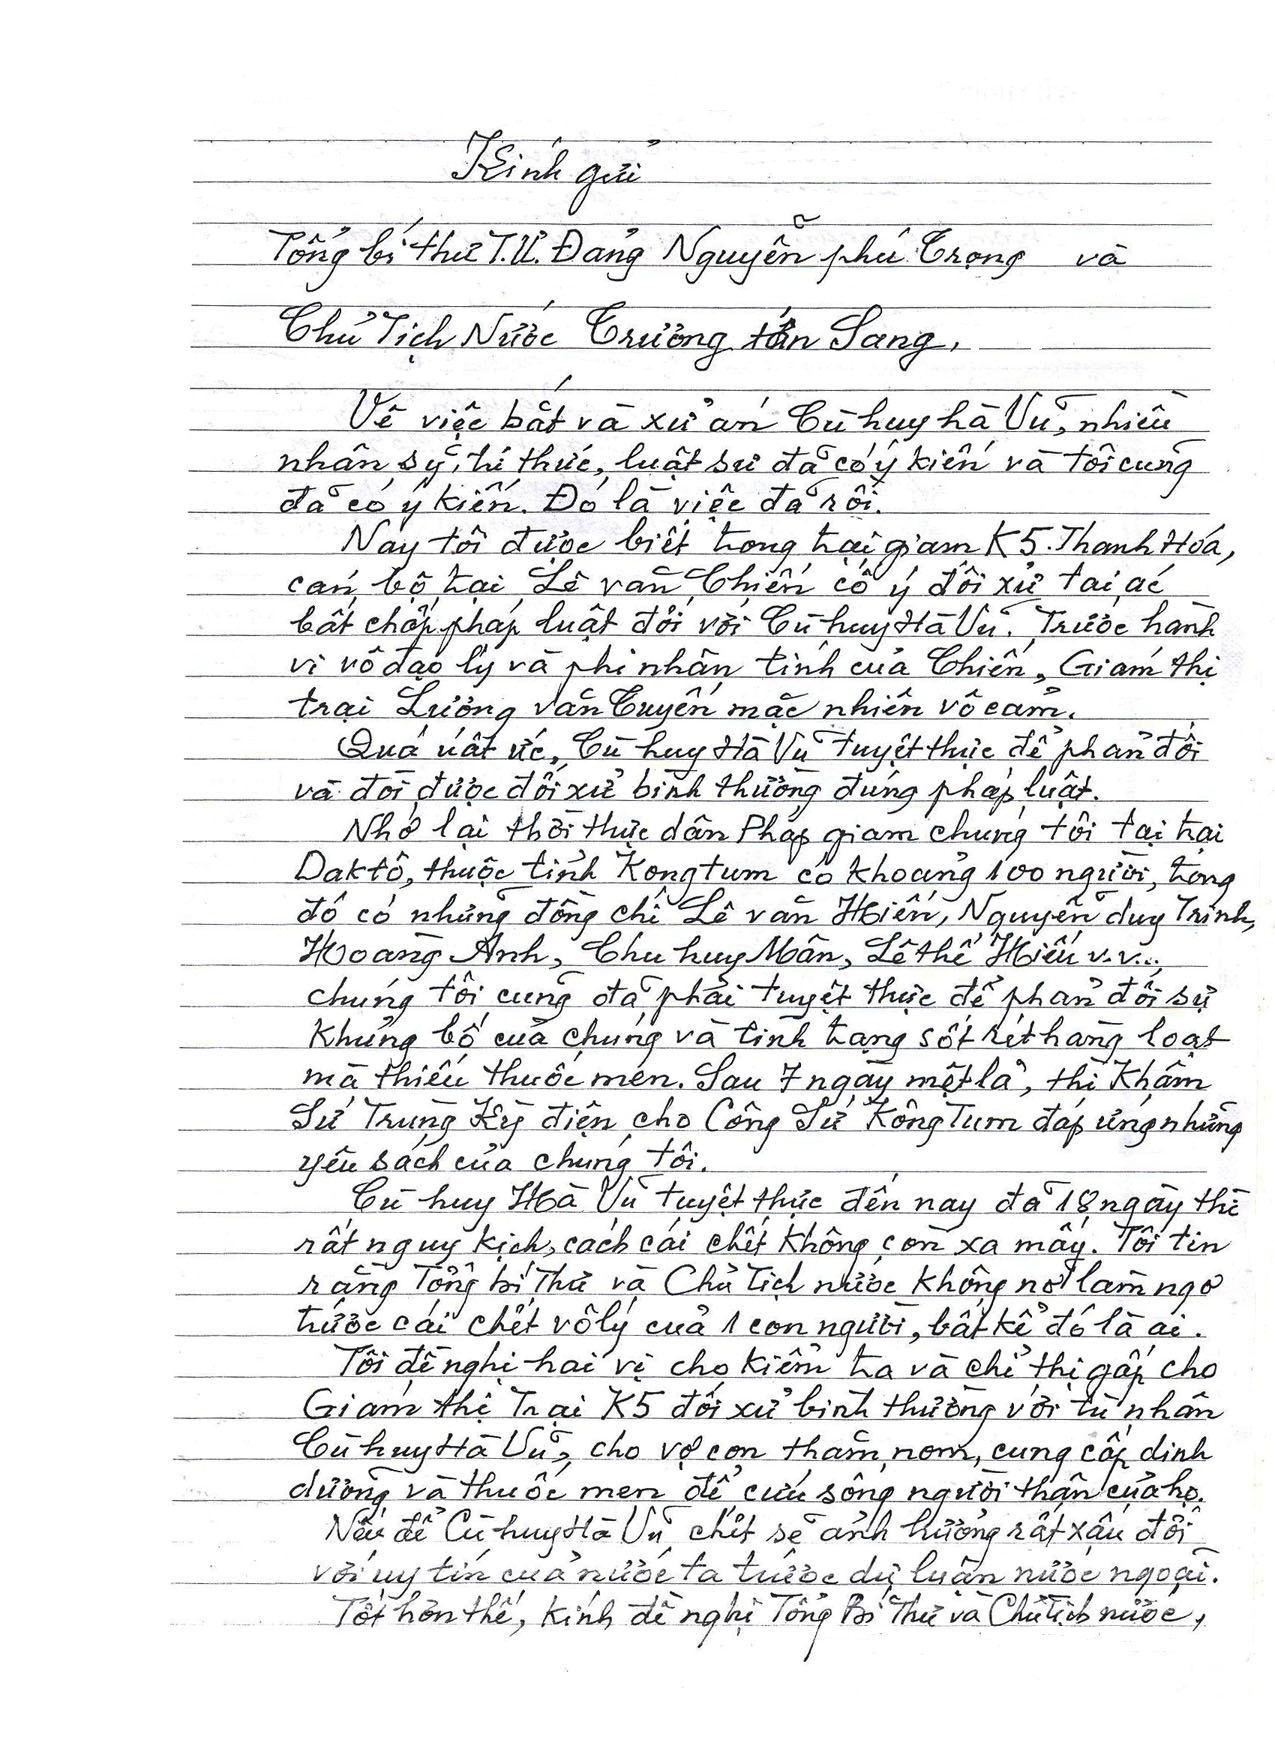 Kính gửi
Tổng bí thư T.Ư. Đảng Nguyễn phú Trọng và
Chủ Tịch Nước Trương tấn Sang,
Về việc bắt và xử án Cù huy hà Vũ, nhiều
nhân sỹ, trí thức, luật sư đã có ý kiến và tôi cũng
đã có ý kiến. Đó là việc đã rồi.
Nay tôi được biết trong trại giam K5. Thanh Hóa,
cán bộ trại Lê văn Chiến cố ý đối xử tai ác
bất chấp pháp luật đối với Cù huy Hà Vũ. Trước hành
vi vô đạo lý và phi nhân tính của Chiến, Giám thị
trại Lương văn Tuyến mặc nhiên vô cảm.
Quá uất ức, Cù huy Hà Vũ tuyệt thực để phản đối
và đòi được đối xử bình thường đúng pháp luật.
Nhớ lại thời thực dân Pháp giam chúng tôi tại trại
Daktô, thuộc tỉnh Kongtum có khoảng 100 người, trong
đó có những đồng chí Lê văn Hiến, Nguyễn duy Trinh,
Hoàng Anh, Chu huy Mân, Lê thế Hiếu v.v...
chúng tôi cũng đã phải tuyệt thực để phản đối sự
khủng bố của chúng và tình trạng sốt rét hàng loạt
mà thiếu thuốc men. Sau 7 ngày mệt lả, thì Khâm
Sứ Trung Kỳ điện cho Công Sứ KôngTum đáp ứng những
yêu sách của chúng tôi.
Cù huy Hà Vũ tuyệt thực đến nay đã 18 ngày thì
rất nguy kịch, cách cái chết không còn xa mấy. Tôi tin
rằng Tổng bí Thư và Chủ Tịch nước không nỡ làm ngơ
trước cái chết vô lý của 1 con người, bất kể đó là ai.
Tôi đề nghị hai vị cho kiểm tra và chỉ thị gấp cho
Giám thị Trại K5 đối xử bình thường với tù nhân
Cù huy Hà Vũ, cho vợ con thăm nom, cung cấp dinh
dưỡng và thuốc men để cứu sống người thân của họ.
Nếu để Cù huy Hà Vũ chết sẽ ảnh hưởng rất xấu đối
với uy tín của nước ta trước dư luận nước ngoài.
Tốt hơn thế, kính đề nghị Tổng Bí Thư và Chủ Tịch nước,